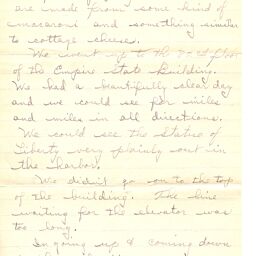 are made from some kind of
maccaroni and something similar
to cottage cheese.
We went up to the floor
of the Empire State Building.
We had a beautifully clear day
and we could see for miles
and miles in all directions.
We could see the Statue of
Liberty very plainly out in
the harbor.
We didn't go on to the top
of the building. The line
waiting for the elevator was
too long.
In going up & coming down